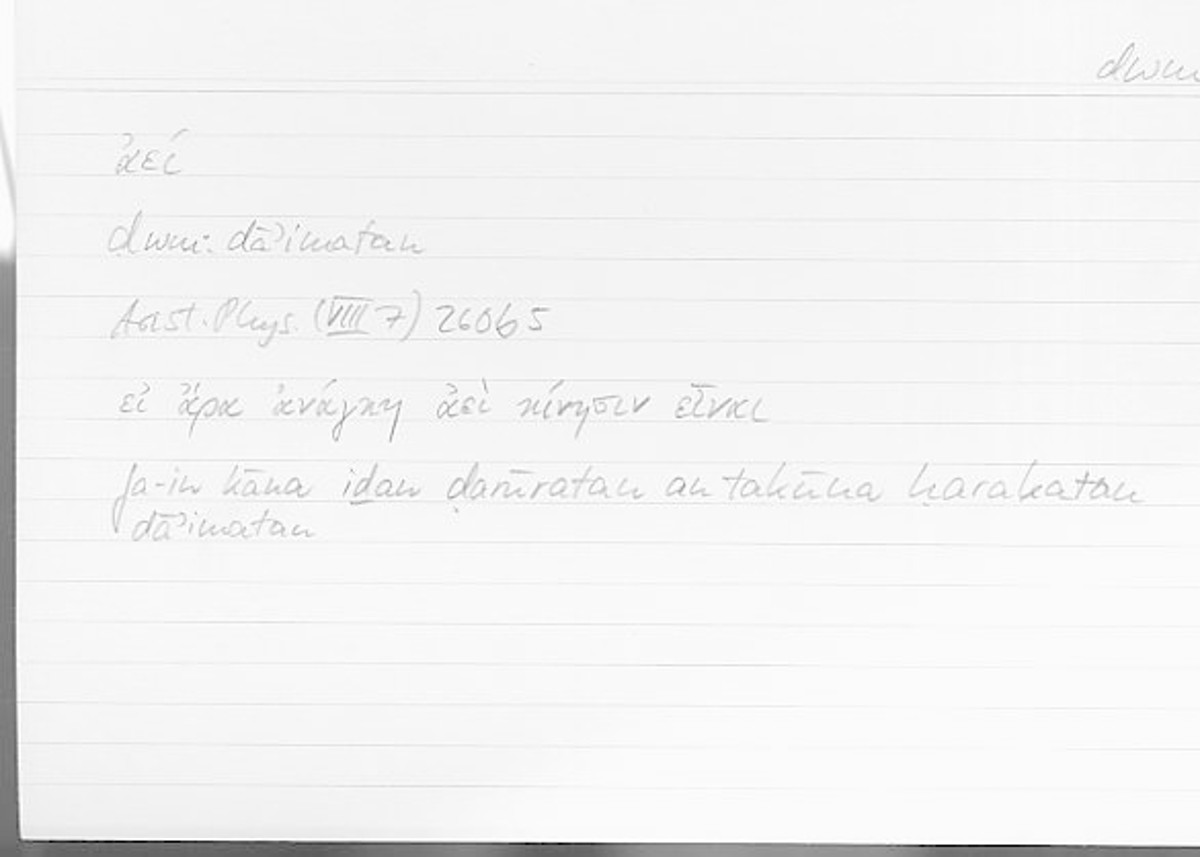 dwm
ἀεί
dwm: dāʾimatan
Arist. Phys. (VIII 7) 260b5
εἰ ἄρα ἀνάγκη ἀεὶ κίνησιν εἶναι
fa-in kāna iḏan ḍarūratan an takūna ḥarakatan
dāʾimatan